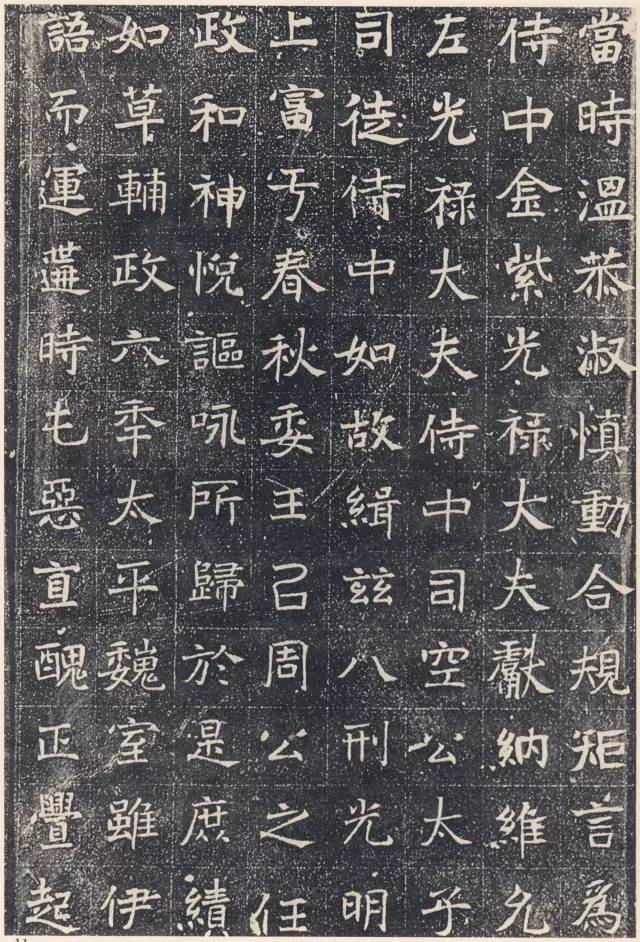 當時溫恭淑慎動合規矩言為
侍中金紫光祿大夫獻納維允
左光祿大夫侍中司空公太乎
司徒侍中如故緝玆八刑光明
上富于春秋委王㠯周公之任
政和神悅謳咏所歸於是庶績
如草輔政六年太平魏室雖伊
語而運遘時屯惡直醜正舋起